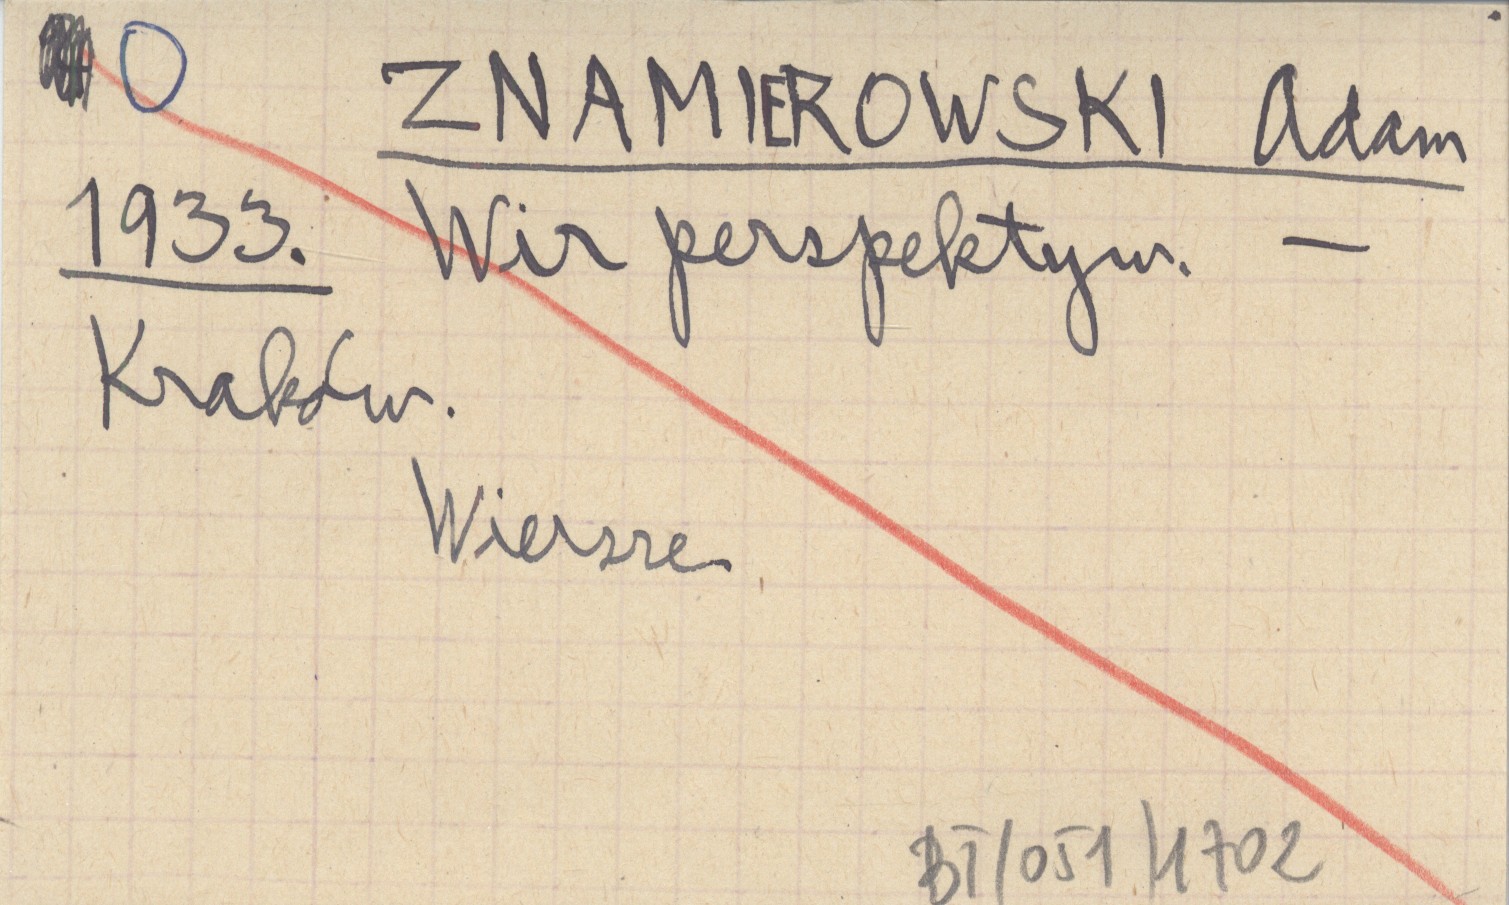 O ZNAMIEROWSKI Adam
1933. Wir perspektyw. —
Kraków.
Wiersze
BT/051/1702